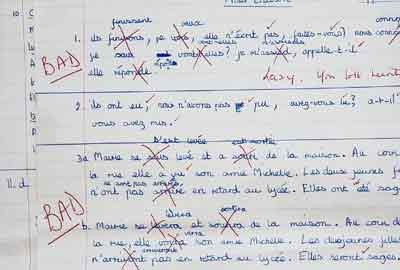 finissent veux
1. ils finissons, je vous, elle n'écrit pas, faites-vous? nous conn
vont-elles m'assieds
je suis vont-elles? je m'assied, appelle-t-il
BAD
elle réponde
Lazy.
2. ils ont eu, nous n'avons pas pu, avez-vous lu? a-t-il
vous avez mis.
s'est levée est sortie
3a Marie se suis levé et a sorti de la maison. Au cour
la rue elle a vu son amie Michelle. Les deux jeunes
ne sont pas arrivés
n'ont pas arrivé en retard au lycée. Elles ont été sage
11.d.
BAD
lèvera sortira
b. Marie se lèvera et sortira de la maison. Au cour d
verra
la rue, elle voira son amie Michelle. Les deux jeunes filles
n'arrivont pas en retard au lycée. Elles seront sages.